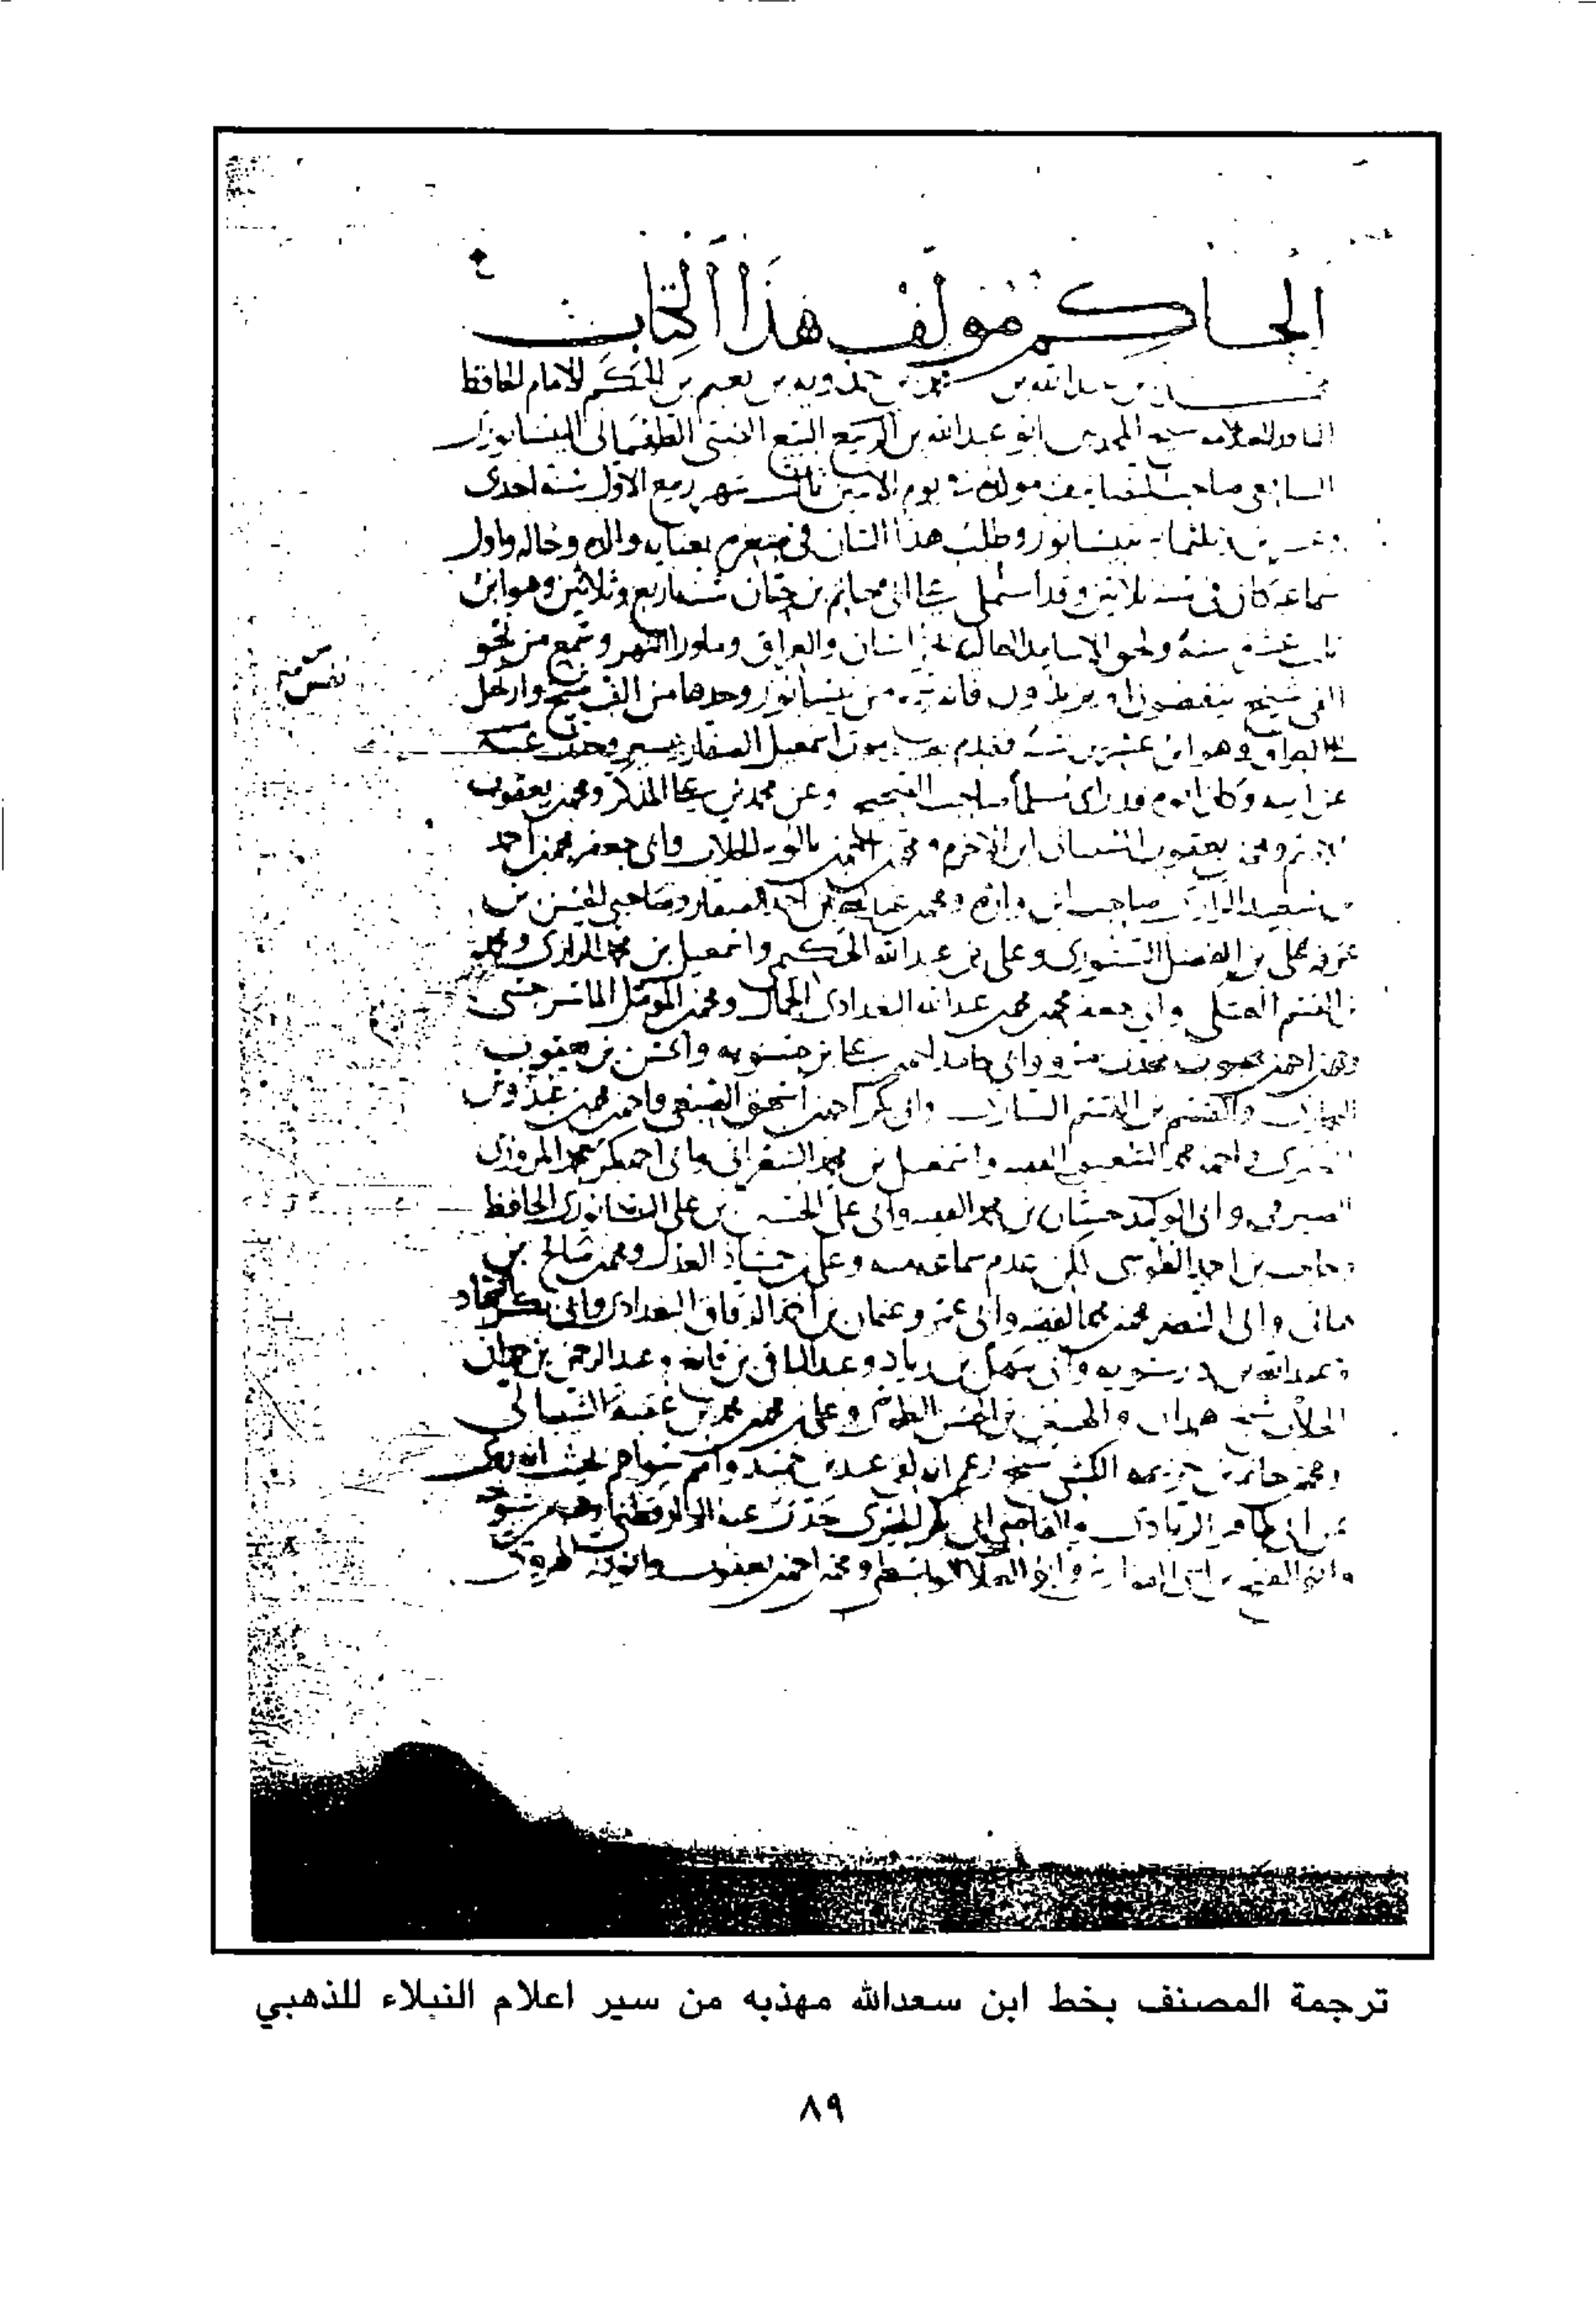 الحاكم مؤلف هذا الكتاب
محمد بن عبد الله بن محمد بن حمدويه بن نعيم بن الحكم الامام الحافظ
الناقد العلامه شيخ المحدثين ابو عبد الله بن البيع الضبي الطهماني النيسابوري
الشافعي صاحب التصانيف مولده يوم الاثنين ثالث شهر ربيع الاول سنه احدى
وعشرين وثلثمايه بنيسابور وطلب هذا الشان في صغره بعنايه والده وخاله واول
سماعه كان في سنه ثلاثين وقد استملى على ابي حاتم بن حبان سنه اربع وثلاثين وهو ابن
ثلث عشره سنه ولحق الاسانيد العاليه بخراسان والعراق وماورا النهر وسمع من نحو
الفي شيخ ينقصون او يزيدون فانه سمع من نيسابور وحدها من الف شيخ وارتحل
الى العراق وهو ابن عشرين سنه فقدم بعد موت اسمعيل الصفار بيسير وحدث عن
عن ابيه وكان ابوه قد راى مسلما صاحب الصحيح وعن محمد بن علي المذكر ومحمد بن يعقوب
الاصم ومحمد بن يعقوب الشيباني ابن الاخرم ومحمد بن احمد بن بالويه الجلاب وابي جعفر محمد بن احمد
بن سعيد الرازي صاحب ابن واره ومحمد بن عبد الله بن احمد الصفار وصاحبي الحسن بن
عرفه علي بن الفضل الستوري وعلي بن عبد الله الحكيمي واسمعيل بن محمد الرازي ومحمد
بن القسم العتكي وابي جعفر محمد بن محمد بن عبد الله البغدادي الجمال ومحمد بن المومل الماسرجسي
ومحمد بن احمد بن محبوب محدث مرو وابي حامد احمد بن علي بن حسنويه والحسن بن يعقوب
البخاري والقسم بن القسم السياري وابي بكر احمد بن اسحق الصبغي واحمد بن محمد بن عبدوس
العنزي واحمد بن محمد الشعيبي الفقيه واسمعيل بن محمد الشعراني وابي احمد بكر بن محمد المروزي
الصيرفي وابي الوليد حسان بن محمد الفقيه وابي علي الحسين بن علي النيسابوري الحافظ
وحاجب بن احمد الطوسي لكن عدم سماعه منه وعلي بن حمشاذ العدل ومحمد بن صالح بن
هانى وابي النضر محمد بن محمد الفقيه وابي عمرو عثمان بن احمد الدقاق البغدادي وابي بكر النجاد
وعبد الله بن درستويه وابي سهل بن زياد وعبد الباقي بن قانع وعبد الرحمن بن حمدان
الجلاب شيخ همدان والحسين بن الحسن الطوسي وعلي بن محمد بن محمد بن عقبة الشيباني
ومحمد بن حاتم بن خزيمه الكشي شيخ زعم انه لقي عبد بن حميد وامم سواهم بحيث انه روى
عن ابي طاهر الزيادي والقاضي ابي بكر الحيري حدث عنه الدارقطني وهو من شيوخه
وابو الفتح بن ابي الفوارس وابو العلا الواسطي ومحمد بن احمد بن يعقوب وابو ذر الهروي
ترجمة المصنف بخط ابن سعدالله مهذبه من سير اعلام النبلاء للذهبي
٨٩